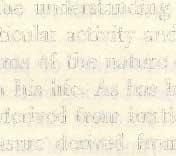 the understanding
ticular activity and
ms of the nature
his life. As has b
derived from
asure derived from